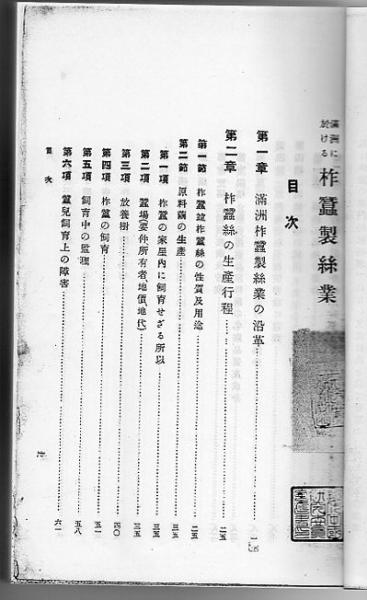 滿洲に
於ける
柞蠶製絲業
目次
第一章 滿洲柞蠶製絲業の沿革…………一
第二章 柞蠶絲の生産行程…………二五
第一節 柞蠶竝柞蠶絲の性質及用途…………二五
第二節 原料繭の生産…………三五
第一項 柞蠶の家屋内に飼育せざる所以…………三五
第二項 蠶場(要件所有者地價地代)…………三五
第三項 放養樹…………四〇
第四項 柞蠶の飼育…………五一
第五項 飼育中の監理…………五八
第六項 蠶兒飼育上の障害…………六一
目次